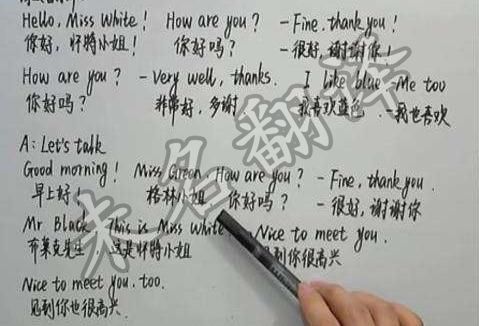 Hello, Miss White! How are you? -Fine, thank you!
你好,怀特小姐! 你好吗? -很好,谢谢你!
How are you? -Very well, thanks. I like blue -Me too
你好吗? 非常好,多谢. 我喜欢蓝色 -我也喜欢
A: Let's talk
Good morning! Miss Green, How are you? -Fine, thank you.
早上好! 格林小姐 你好吗? -很好,谢谢你
Mr Black, This is Miss White. Nice to meet you.
布莱克先生,这是怀特小姐 见到你很高兴
Nice to meet you, too.
见到你也很高兴.